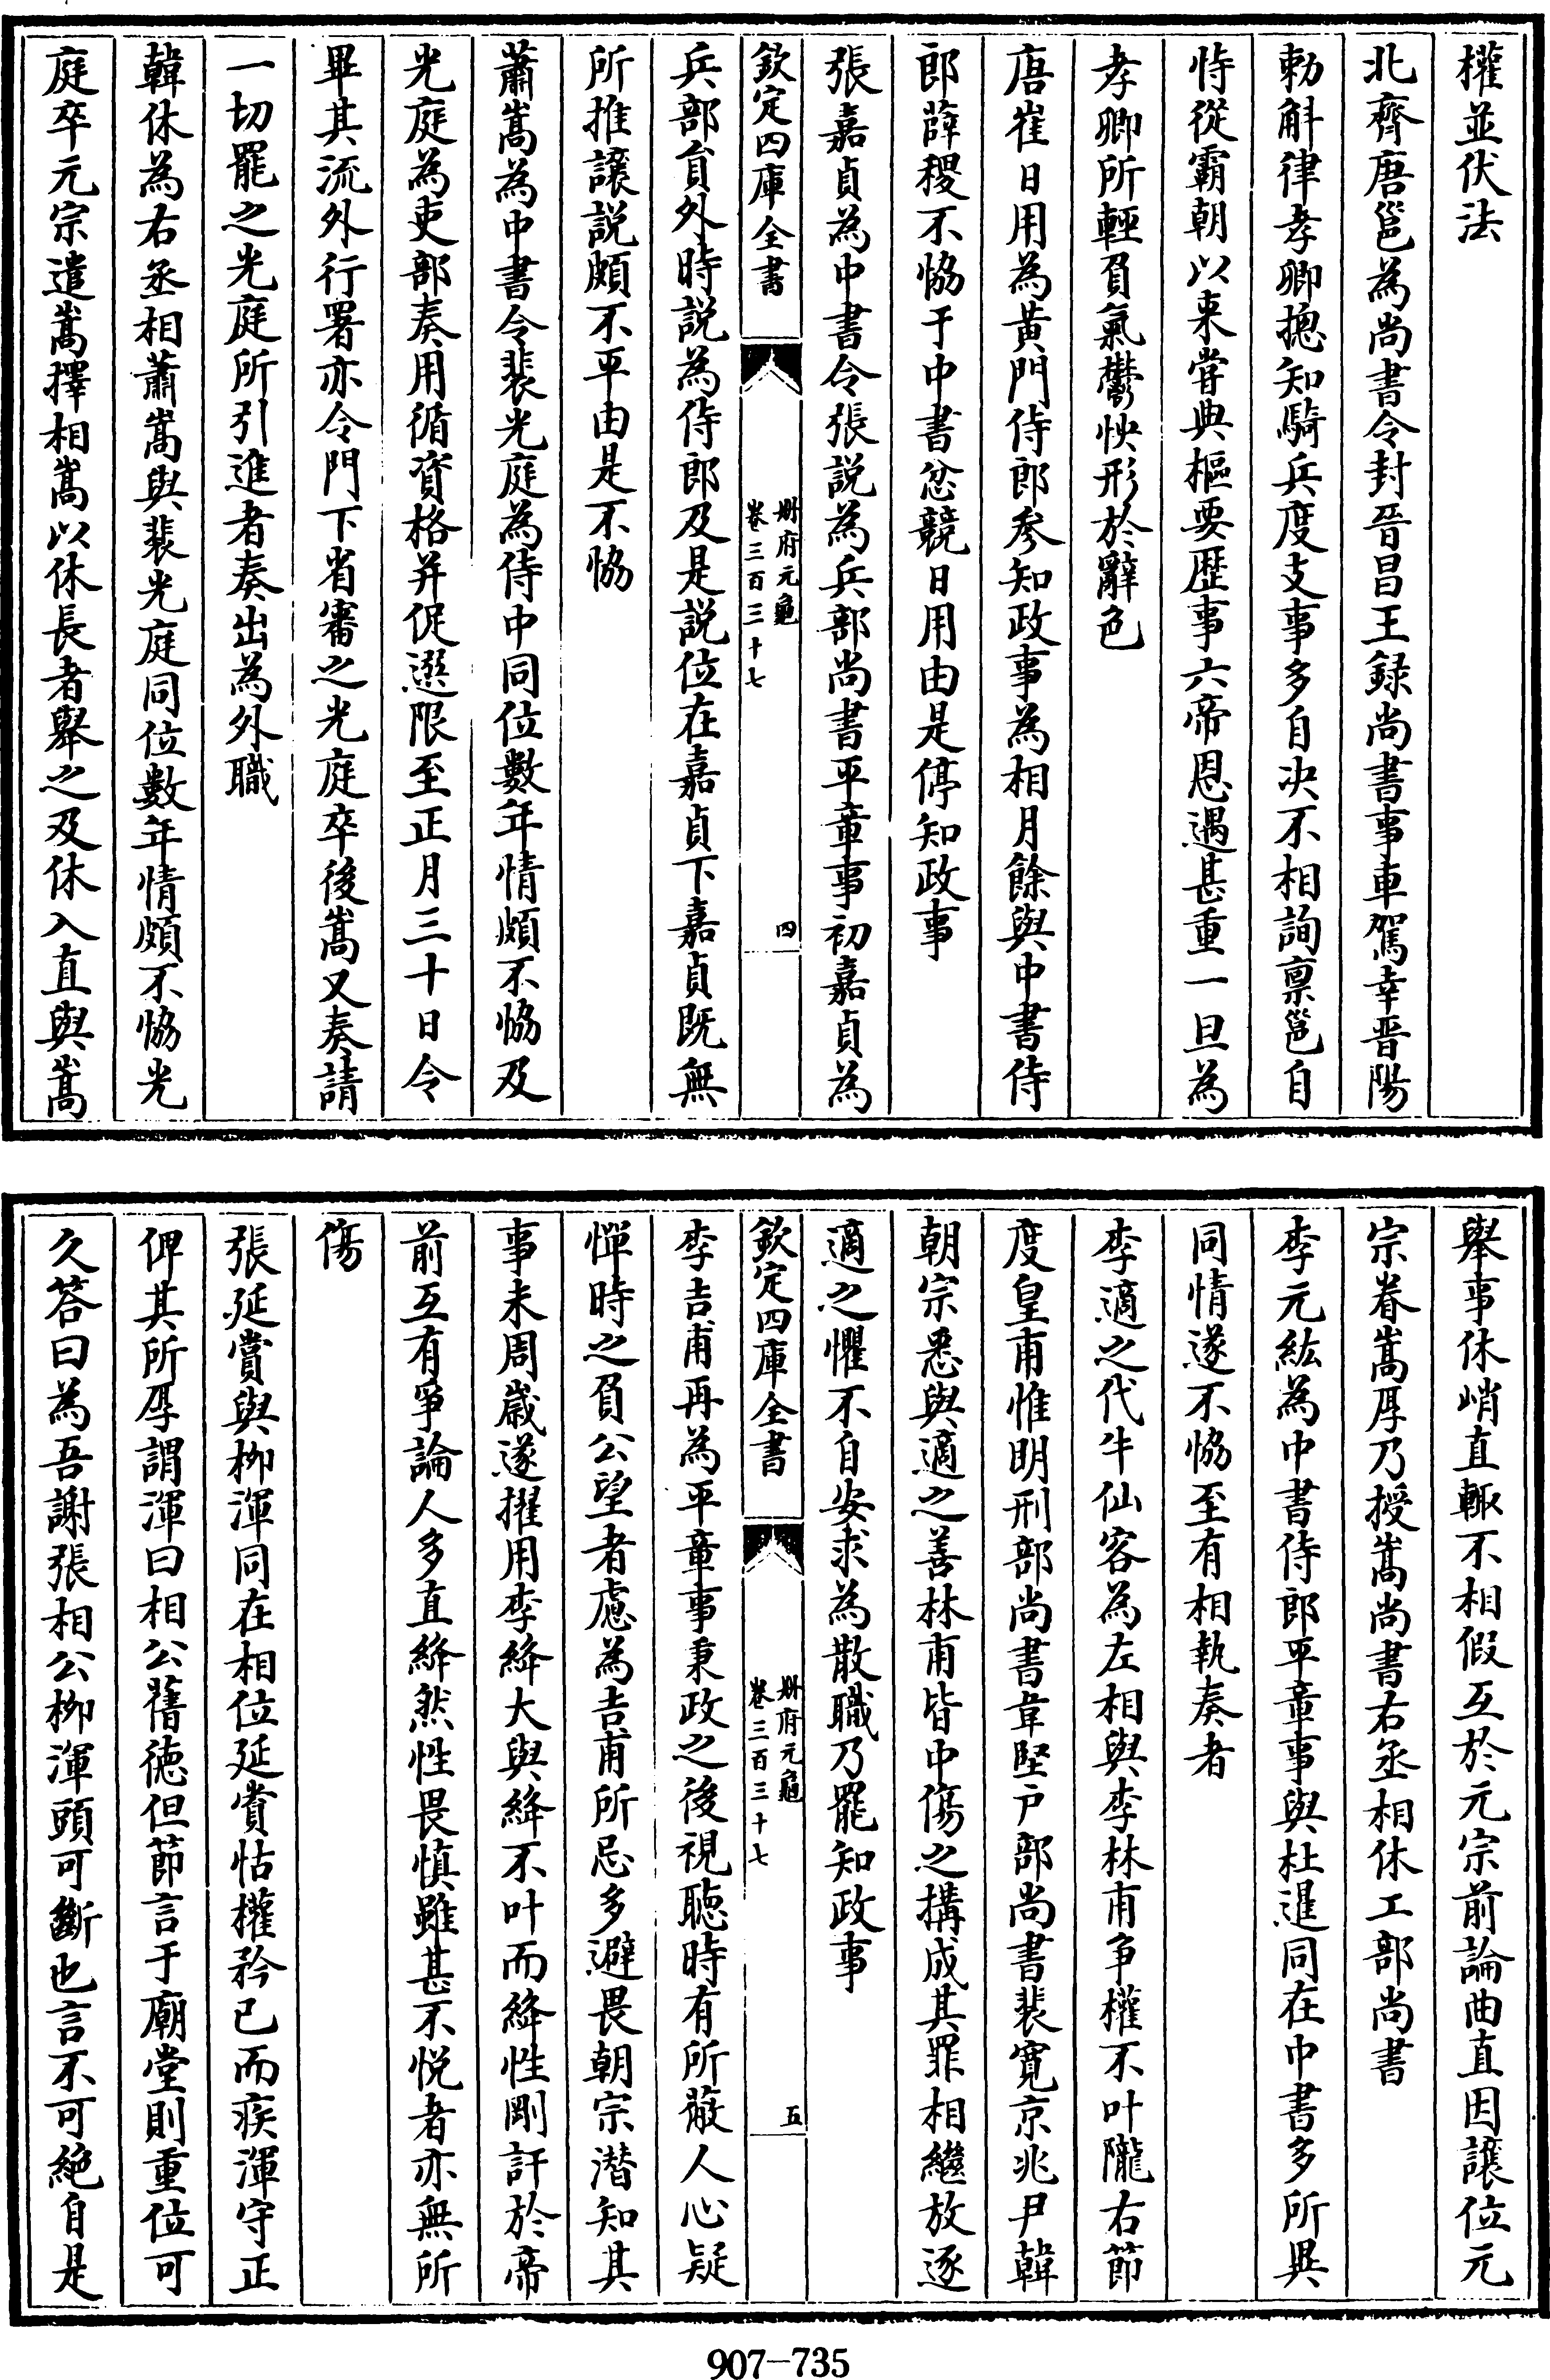 權並伏法
北齊唐邕為尚書令封晉昌王録尚書事車駕幸晉陽
勅斛律孝卿摠知騎兵度支事多自决不相詢禀邕自
恃從霸朝以來嘗典樞要歴事六帝恩遇甚重一旦為
孝卿所輕負氣鬱怏形於辭色
唐崔日用為黄門侍郎參知政事為相月餘與中書侍
郎薛稷不恊于中書忿競日用由是停知政事
張嘉貞為中書令張説為兵部尚書平章事初嘉貞為
欽定四庫全書
冊府元龜
卷三百三十七
四
兵部負外時説為侍郎及是説位在嘉貞下嘉貞既無
所推讓説頗不平由是不恊
蕭嵩為中書令裴光庭為侍中同位數年情頗不恊及
光庭為吏部奏用循資格并促選限至正月三十日令
畢其流外行署亦令門下省審之光庭卒後嵩又奏請
一切罷之光庭所引進者奏出為外職
韓休為右丞相蕭嵩與裴光庭同位數年情頗不恊光
庭卒元宗遣嵩擇相嵩以休長者舉之及休入直與嵩
舉事休峭直輒不相假互於元宗前論曲直因讓位元
宗眷嵩厚乃授嵩尚書右丞相休工部尚書
李元紘為中書侍郎平章事與杜暹同在中書多所異
同情遂不恊至有相執奏者
李適之代牛仙客為左相與李林甫争權不叶隴右節
度皇甫惟明刑部尚書韋堅户部尚書裴寛京兆尹韓
朝宗悉與適之善林甫皆中傷之搆成其罪相繼放逐
適之懼不自安求為散職乃罷知政事
欽定四庫全書
冊府元龜
卷三百三十七
五
李吉甫再為平章事秉政之後視聽時有所蔽人心疑
憚時之負公望者慮為吉甫所忌多避畏朝宗潜知其
事未周歲遂擢用李絳大與絳不叶而絳性剛訐於帝
前互有爭論人多直絳然性畏慎雖甚不悦者亦無所
傷
張延賞與柳渾同在相位延賞怙權矜已而疾渾守正
俾其所厚謂渾曰相公舊徳但節言于廟堂則重位可
久答曰為吾謝張相公柳渾頭可斷也言不可絶自是
907-735